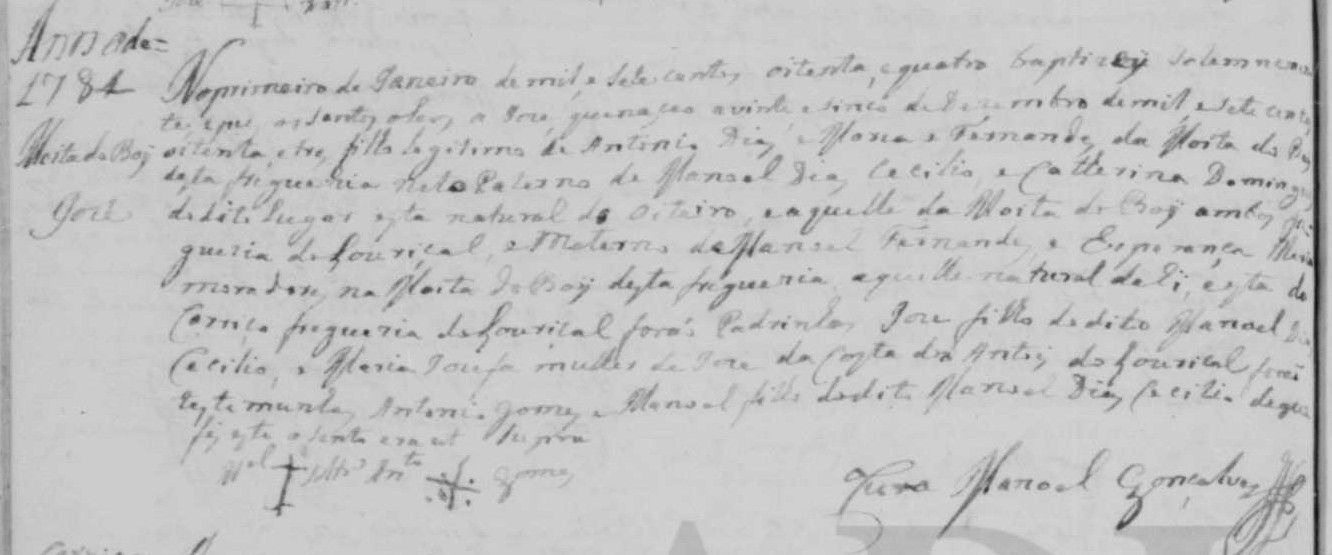 Anno de=
1784
Moita do Boý
José
No primeiro de Janeiro de mil, e Sete centos, oitenta, e quatro baptizej Solemnemen
te e pus os santos oleos a José que nasceo a vinte e sinco de Dezembro de mil, e Sete centos
oitenta, e tres, filho legitimo de Antonio Dias e Maria Fernandes da Moita do Boý
desta fregueria neto Paterno de Manoel Dias Cecilio, e Catherina Domingues
do dito lugar esta natural do Oiteiro, e aquelle da Moita do Boý ambos fre
gueria do Lourical, e Materno de Manoel Fernandes, e Esperança Maria
moradores na Moita do Boý desta fregueria, aquelle natural de li, e esta do
Carriço fregueria do Lourical foraõ Padrinhos José filho do dito Manoel Dias
Cecilio, e Maria Joufa mulher de José da Costa dos do Lourical foraõ
testemunhas Antonio Gomes e Manoel filho do dito Manoel Dias Cecilio de que
fis este asento era ut supra
M.el solt.ro Ant.o Gomes
Cura Manoel Gonçalves